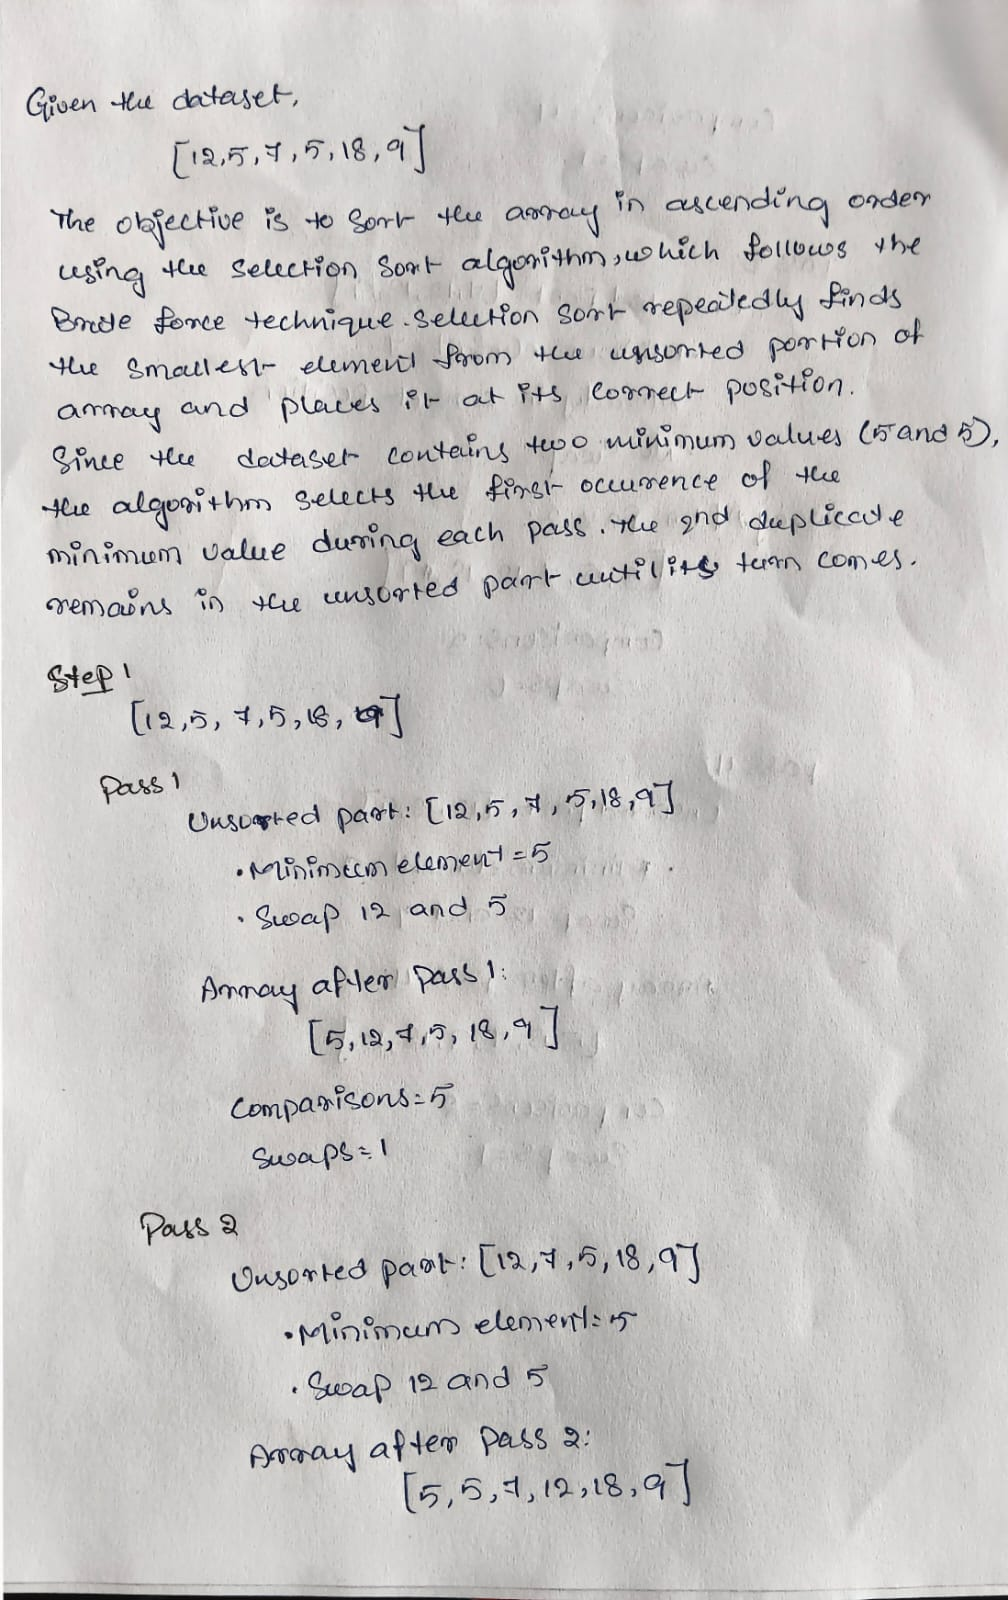 Given the dataset,
[12,5,7,5,18,9]
The objective is to sort the array in ascending order
using the selection sort algorithm, which follows the
Brute force technique. Selection sort repeatedly finds
the smallest element from the unsorted portion of
array and places it at its correct position.
Since the dataset contains two minimum values (5 and 5),
the algorithm selects the first occurence of the
minimum value during each pass. The 2nd duplicate
remains in the unsorted part until its turn comes.
Step 1
[12,5,7,5,18,9]
Pass 1
Unsorted part: [12,5,7,5,18,9]
• Minimum element = 5
• Swap 12 and 5
Array after pass 1:
[5,12,7,5,18,9]
Comparisons = 5
Swaps = 1
Pass 2
Unsorted part: [12,7,5,18,9]
• Minimum element = 5
• Swap 12 and 5
Array after pass 2:
[5,5,7,12,18,9]